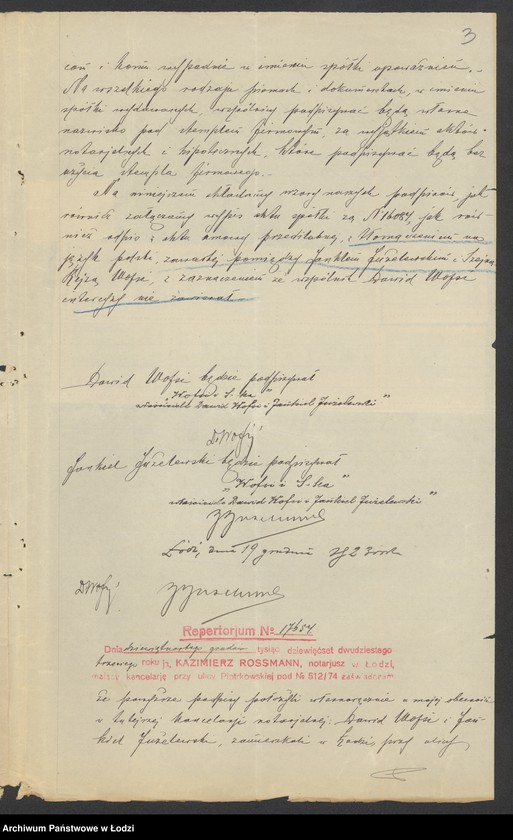 3
ceń i komu wypadnie w imieniu spółki upoważnieni.-
Na wszelkiego rodzaju pismach i dokumentach, w imieniu
spółki wydawanych, wspólnicy podpisywać będą własne
nazwisko pod stemplem firmowym, za wyjątkiem aktów
notarjalnych i hipotecznych, które podpisywać będą bez
użycia stempla firmowego.-
Na niniejszem składamy wzory naszych podpisów, jak
również załączamy wypis aktu spółki za № 16084, jak rów-
nież odpis z aktu umowy przedślubnej, z tłomaczeniem na
język polski, zawartej pomiędzy Janklem Juzelewskim i
Rejzą Wofsi, z zaznaczeniem że wspólnik Dawid Wofsi
intercyzy nie zawierał
Dawid Wofsi będzie podpisywał
"Wofsi i S-ka"
właściciele Dawid Wofsi i Jankiel Juzelewski"
DWofsi
Jankiel Juzelewski będzie podpisywał
"Wofsi i S-ka"
właściciele Dawid Wofsi i Jankiel Juzelewski"
Łódź, dnia 19 grudnia
DWofsi
Repertorjum № 17654.
Dnia dziewiętnastego grudnia tysiąc dziewięćset dwudziestego
roku ja, KAZIMIERZ ROSSMANN, notarjusz w Łodzi,
mający kancelarję przy ulicy Piotrkowskiej pod № 512/74 zaświadczam
że powyższe podpisy położyli własnoręcznie w mojej obecności
w tutejszej kancelarji notarjalnej: Dawid Wofsi i Jan-
kiel Juzelewski, zamieszkali w Łodzi, przy ulicy
Archiwum Państwowe w Łodzi